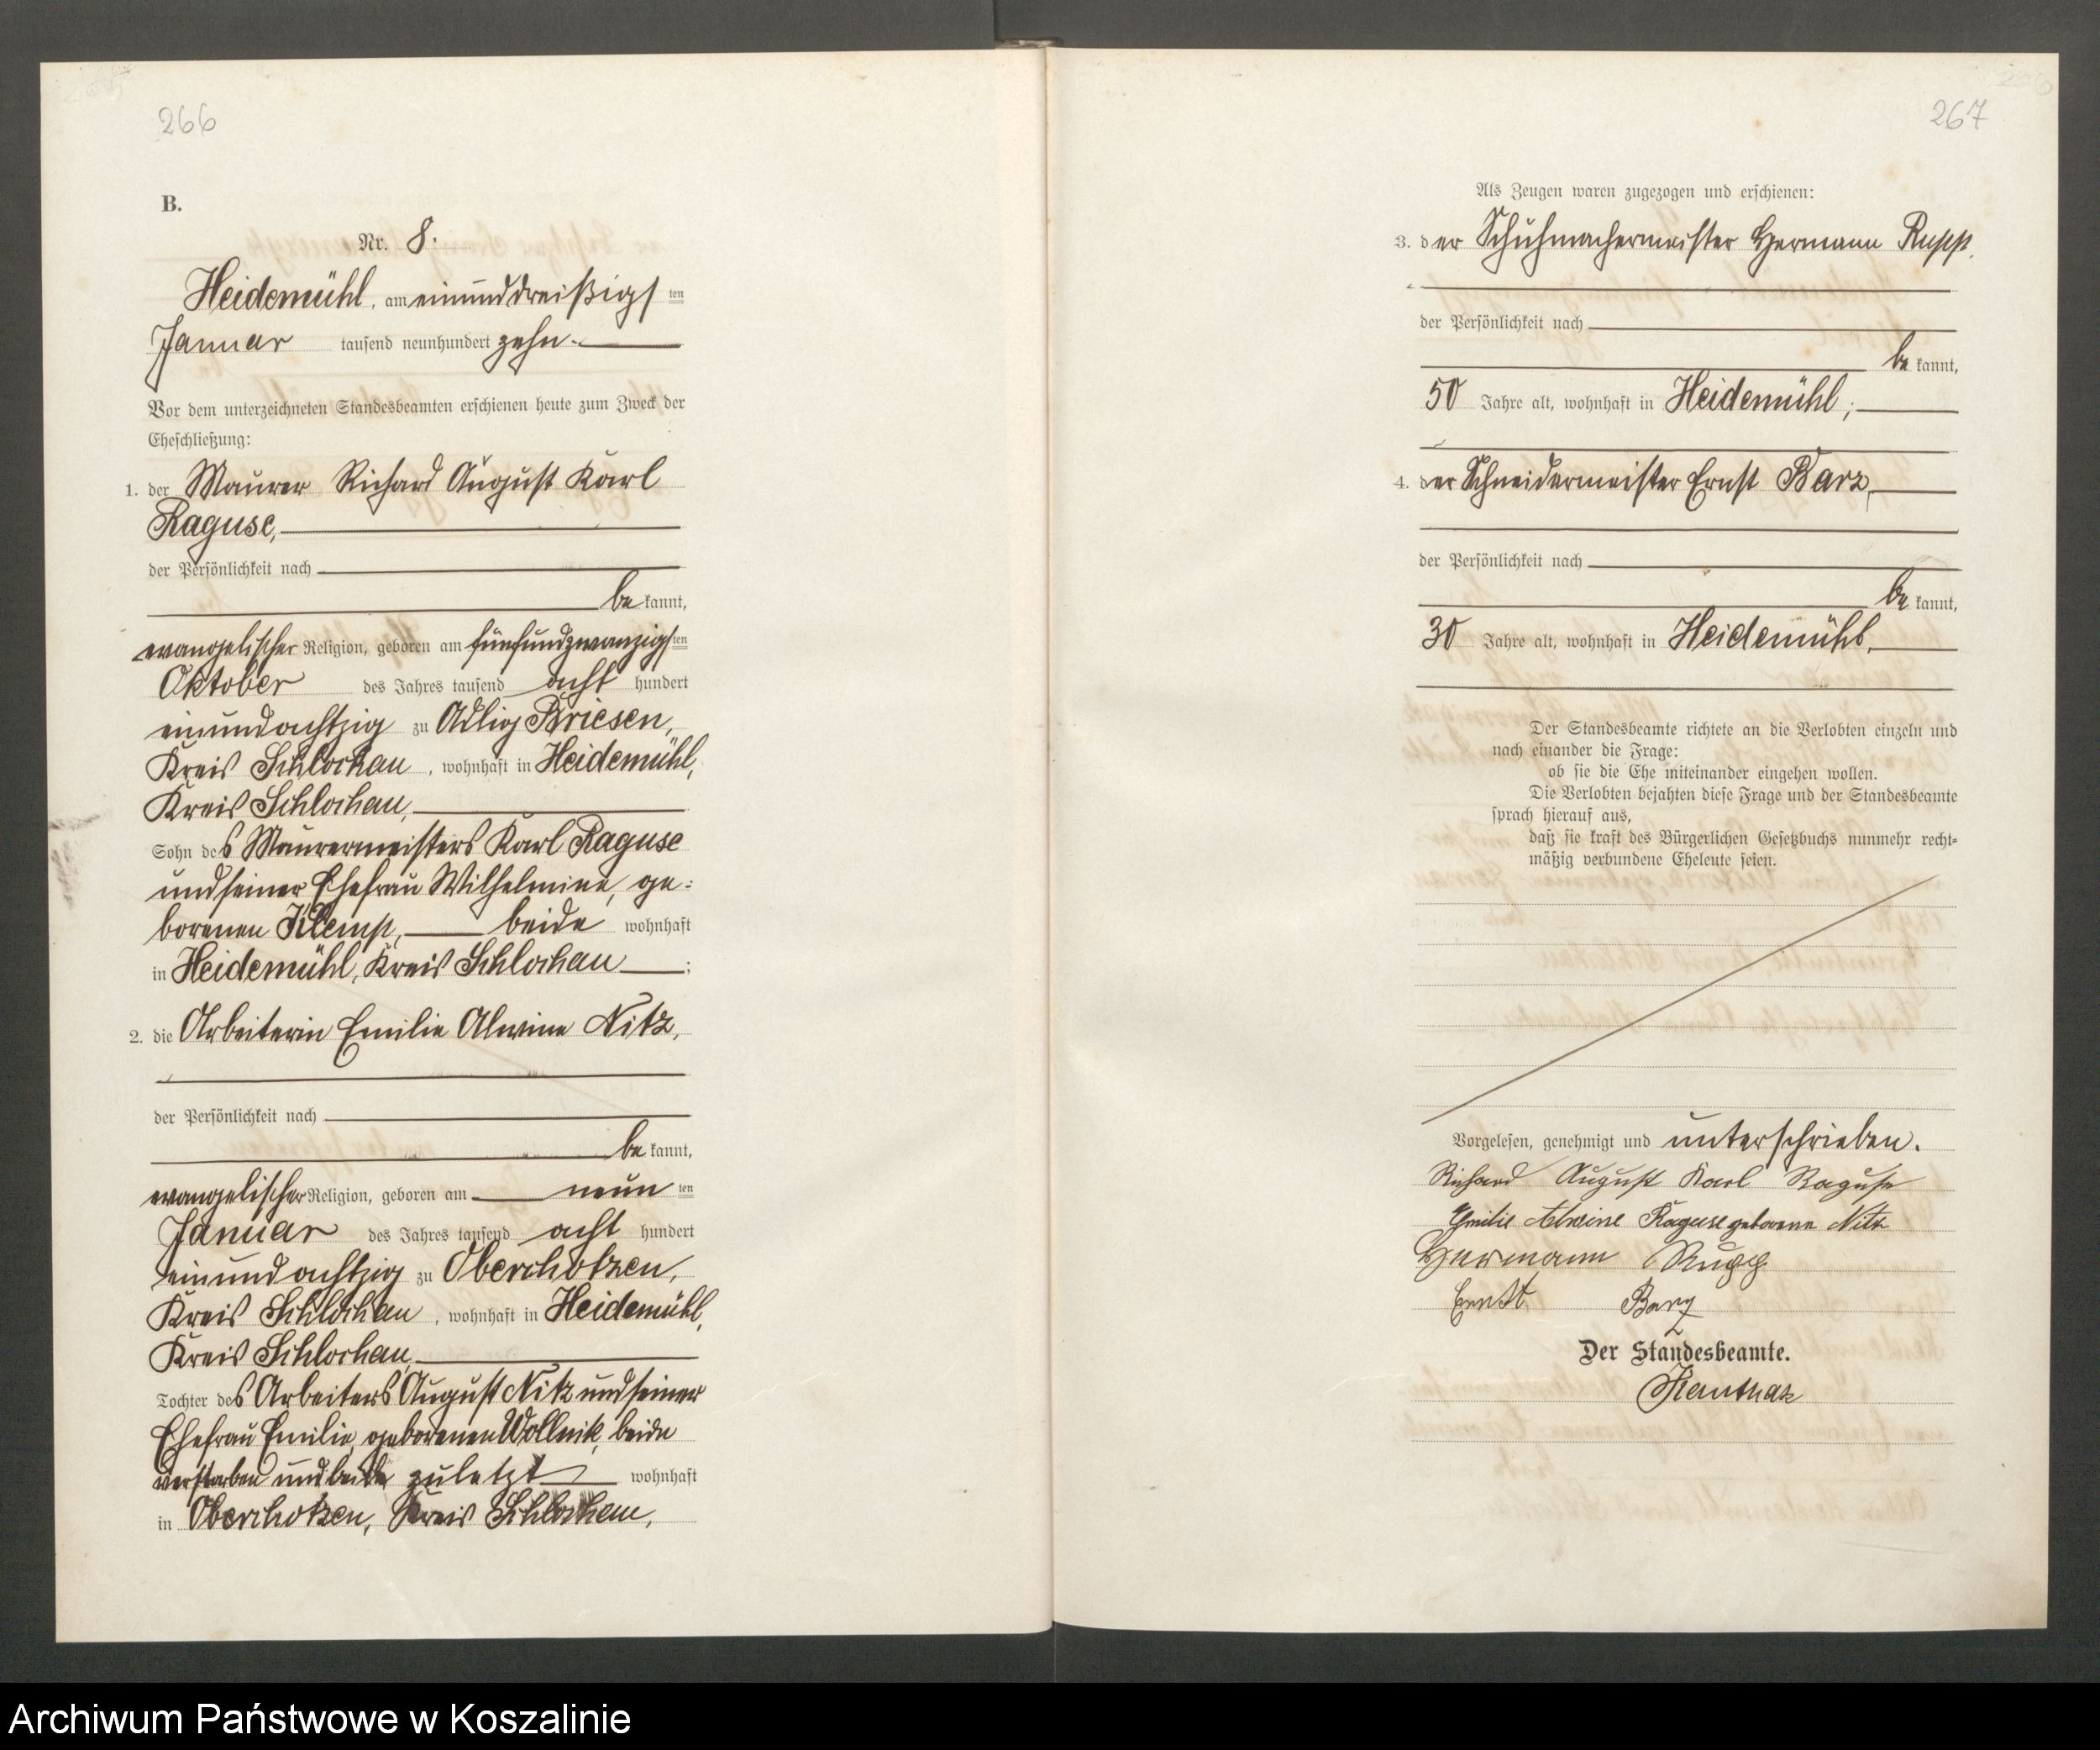 266
B.
Nr. 8.
Heidemühl, am einunddreißigsten
Januar tausend neunhundert zehn.
Vor dem unterzeichneten Standesbeamten erschienen heute zum Zweck der
Eheschließung:
1. der Maurer Richard August Karl
Raguse,
der Persönlichkeit nach
be kannt,
evangelischer Religion, geboren am fünfundzwanzigsten
Oktober des Jahres tausend acht hundert
einundachtzig zu Adlig Briesen,
Kreis Schlochau, wohnhaft in Heidemühl,
Kreis Schlochau,
Sohn des Maurermeisters Karl Raguse
und seiner Ehefrau Wilhelmine, ge-
borenen Klemp, beide wohnhaft
in Heidemühl, Kreis Schlochau;
2. die Arbeiterin Emilie Alwine Nitz,
der Persönlichkeit nach
be kannt,
evangelischer Religion, geboren am neunten
Januar des Jahres tausend acht hundert
einundachtzig zu Oberchotzen,
Kreis Schlochau, wohnhaft in Heidemühl,
Kreis Schlochau,
Tochter des Arbeiters August Nitz und seiner
Ehefrau Emilie, geborenen Wollnik, beide
verstorben und beide zuletzt wohnhaft
in Oberchotzen, Kreis Schlochau,
267
Als Zeugen waren zugezogen und erschienen:
3. der Schuhmachermeister Hermann Rupp,
der Persönlichkeit nach
be kannt,
50 Jahre alt, wohnhaft in Heidemühl;
4. der Schneidermeister Ernst Barz,
der Persönlichkeit nach
be kannt,
30 Jahre alt, wohnhaft in Heidemühl,
Der Standesbeamte richtete an die Verlobten einzeln und
nach einander die Frage:
ob sie die Ehe miteinander eingehen wollen.
Die Verlobten bejahten diese Frage und der Standesbeamte
sprach hierauf aus,
daß sie kraft des Bürgerlichen Gesetzbuchs nunmehr recht-
mäßig verbundene Eheleute seien.
Vorgelesen, genehmigt und unterschrieben.
Richard August Karl Raguse
Emilie Alwine Raguse geborene Nitz
Hermann Rupp
Ernst Barz
Der Standesbeamte.
Archiwum Państwowe w Koszalinie